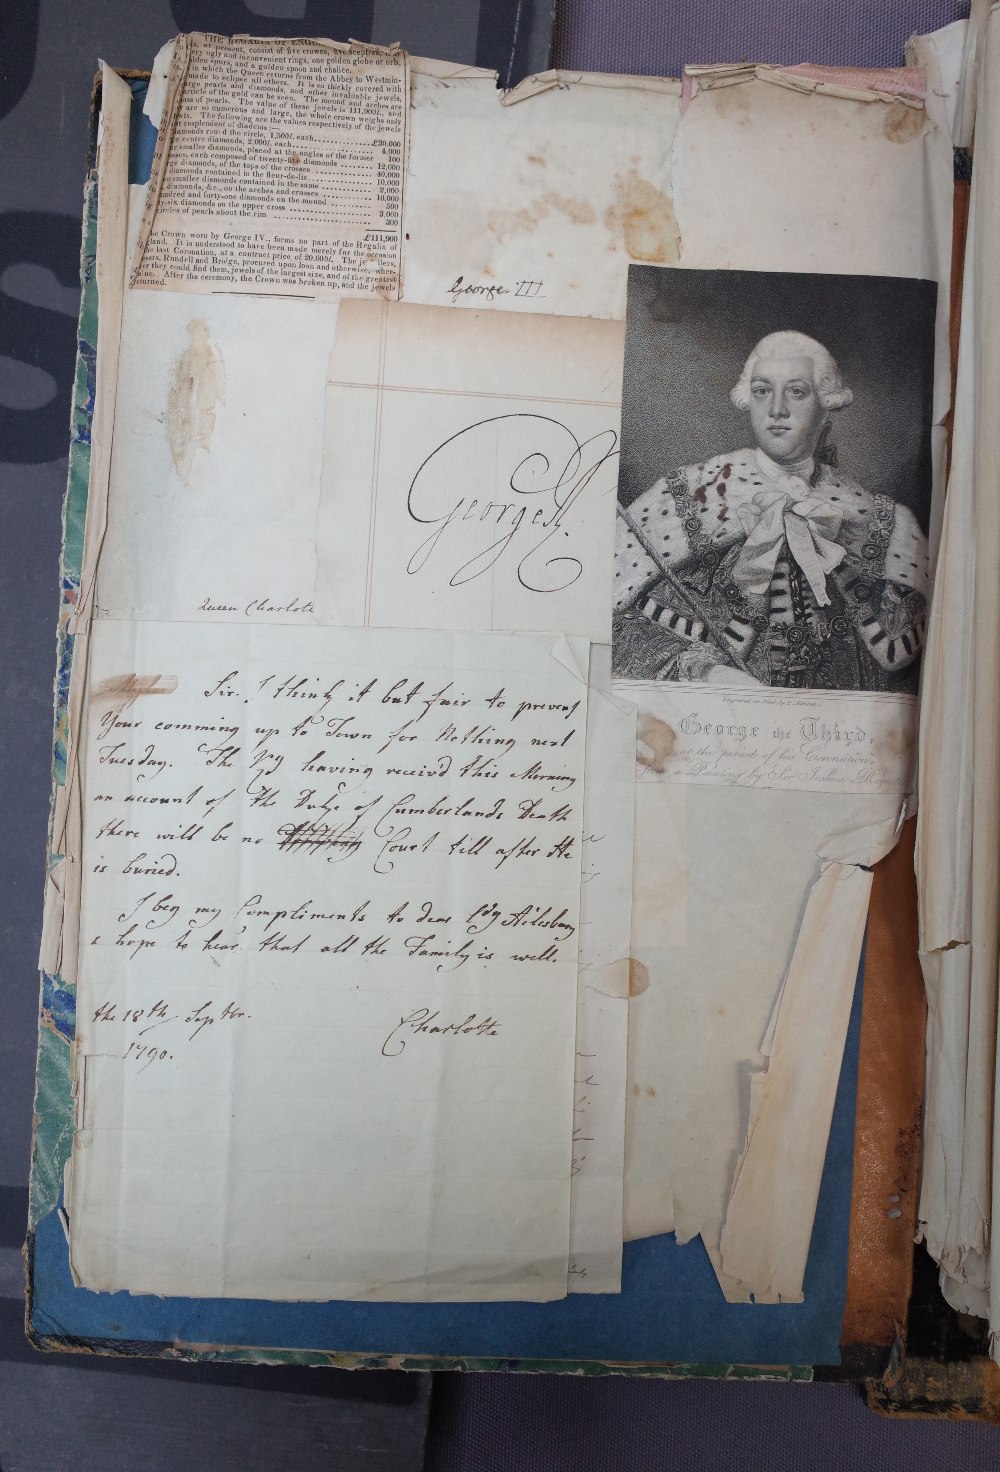 THE REGALIA OF
at present, consist of five crowns, five sceptres,
ugly and inconvenient rings, one golden globe or orb,
golden spurs, and a golden spoon and chalice.
in which the Queen returns from the Abbey to Westmin-
made to eclipse all others. It is so thickly covered with
large pearls and diamonds, and other invaluable jewels,
particle of the gold can be seen. The mound and arches are
mass of pearls. The value of these jewels is 111,900l., and
are so numerous and large, the whole crown weighs only
The following are the values respectively of the jewels
resplendent of diadems:—
diamonds round the circle, 1,500l. each £30,000
centre diamonds, 2,000l. each 4,000
smaller diamonds, placed at the angles of the former 100
crosses, each composed of twenty-five diamonds 12,000
large diamonds, of the tops of the crosses 40,000
diamonds contained in the fleur-de-lis 10,000
smaller diamonds contained in the same 2,000
diamonds, &c., on the arches and crosses 10,000
hundred and forty-one diamonds on the mound 500
-six diamonds on the upper cross 3,000
circles of pearls about the rim 300
£111,900
the Crown worn by George IV., forms no part of the Regalia of
England. It is understood to have been made merely for the occasion
the last Coronation, at a contract price of 20,000l. The
Messrs. Rundell and Bridge, procured upon loan and otherwise, wher-
ever they could find them, jewels of the largest size, and of the greatest
value. After the ceremony, the Crown was broken up, and the jewels
returned.
George III
George R.
Queen Charlotte
Sir. I think it but fair to prevent
Your comming up to Town for Nothing next
Tuesday. The Kg having receiv'd this Morning
an account of the Duke of Cumberlands Death
there will be no Court till after He
is buried.
I beg my Compliments to dear Ldy Ailesbury
& hope to hear that all the Family is well.
the 18th Septbr.
1790.
Charlotte
Engraved on Steel by
George the Third,
at the period of his Coronation,
from a Painting by Sir Joshua